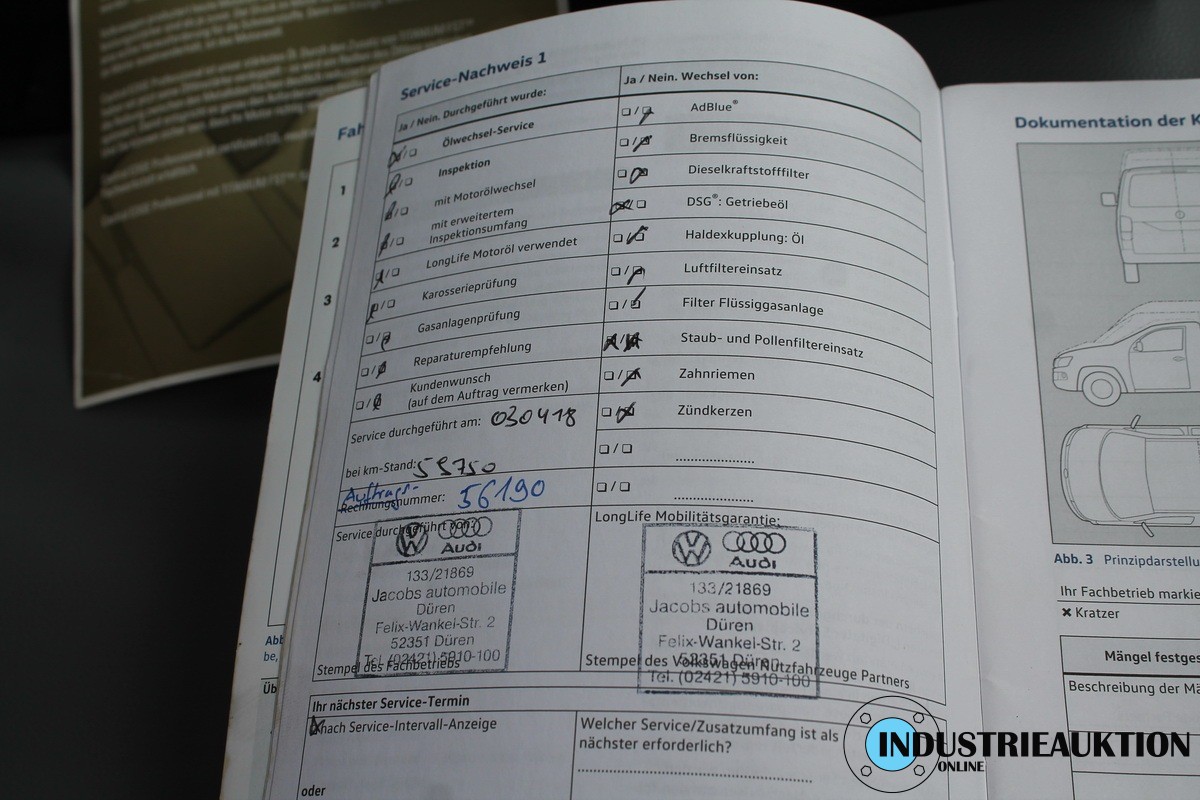 Service-Nachweis 1
Ja / Nein. Durchgeführt wurde:
Ölwechsel-Service
Inspektion
mit Motorölwechsel
mit erweitertem
Inspektionsumfang
LongLife Motoröl verwendet
Karosserieprüfung
Gasanlagenprüfung
Reparaturempfehlung
Kundenwunsch
(auf dem Auftrag vermerken)
Service durchgeführt am: 030418
bei km-Stand: 59750
Auftrags-
Rechnungsnummer: 56190
Service durchgeführt von:
Audi
133/21869
Jacobs automobile
Düren
Felix-Wankel-Str. 2
52351 Düren
Tel. (02421) 5910-100
Stempel des Fachbetriebs
Ja / Nein. Wechsel von:
AdBlue®
Bremsflüssigkeit
Dieselkraftstofffilter
DSG®: Getriebeöl
Haldexkupplung: Öl
Luftfiltereinsatz
Filter Flüssiggasanlage
Staub- und Pollenfiltereinsatz
Zahnriemen
Zündkerzen
LongLife Mobilitätsgarantie:
Audi
133/21869
Jacobs automobile
Düren
Felix-Wankel-Str. 2
52351 Düren
Tel. (02421) 5910-100
Stempel des Volkswagen Nutzfahrzeuge Partners
Ihr nächster Service-Termin
nach Service-Intervall-Anzeige
oder
Welcher Service/Zusatzumfang ist als
nächster erforderlich?
Fah
1
2
3
4
Abb
be,
Üb
Dokumentation der K
Abb. 3 Prinzipdarstellu
Ihr Fachbetrieb markie
✖ Kratzer
Mängel festges
Beschreibung der Mä
INDUSTRIEAUKTION
ONLINE